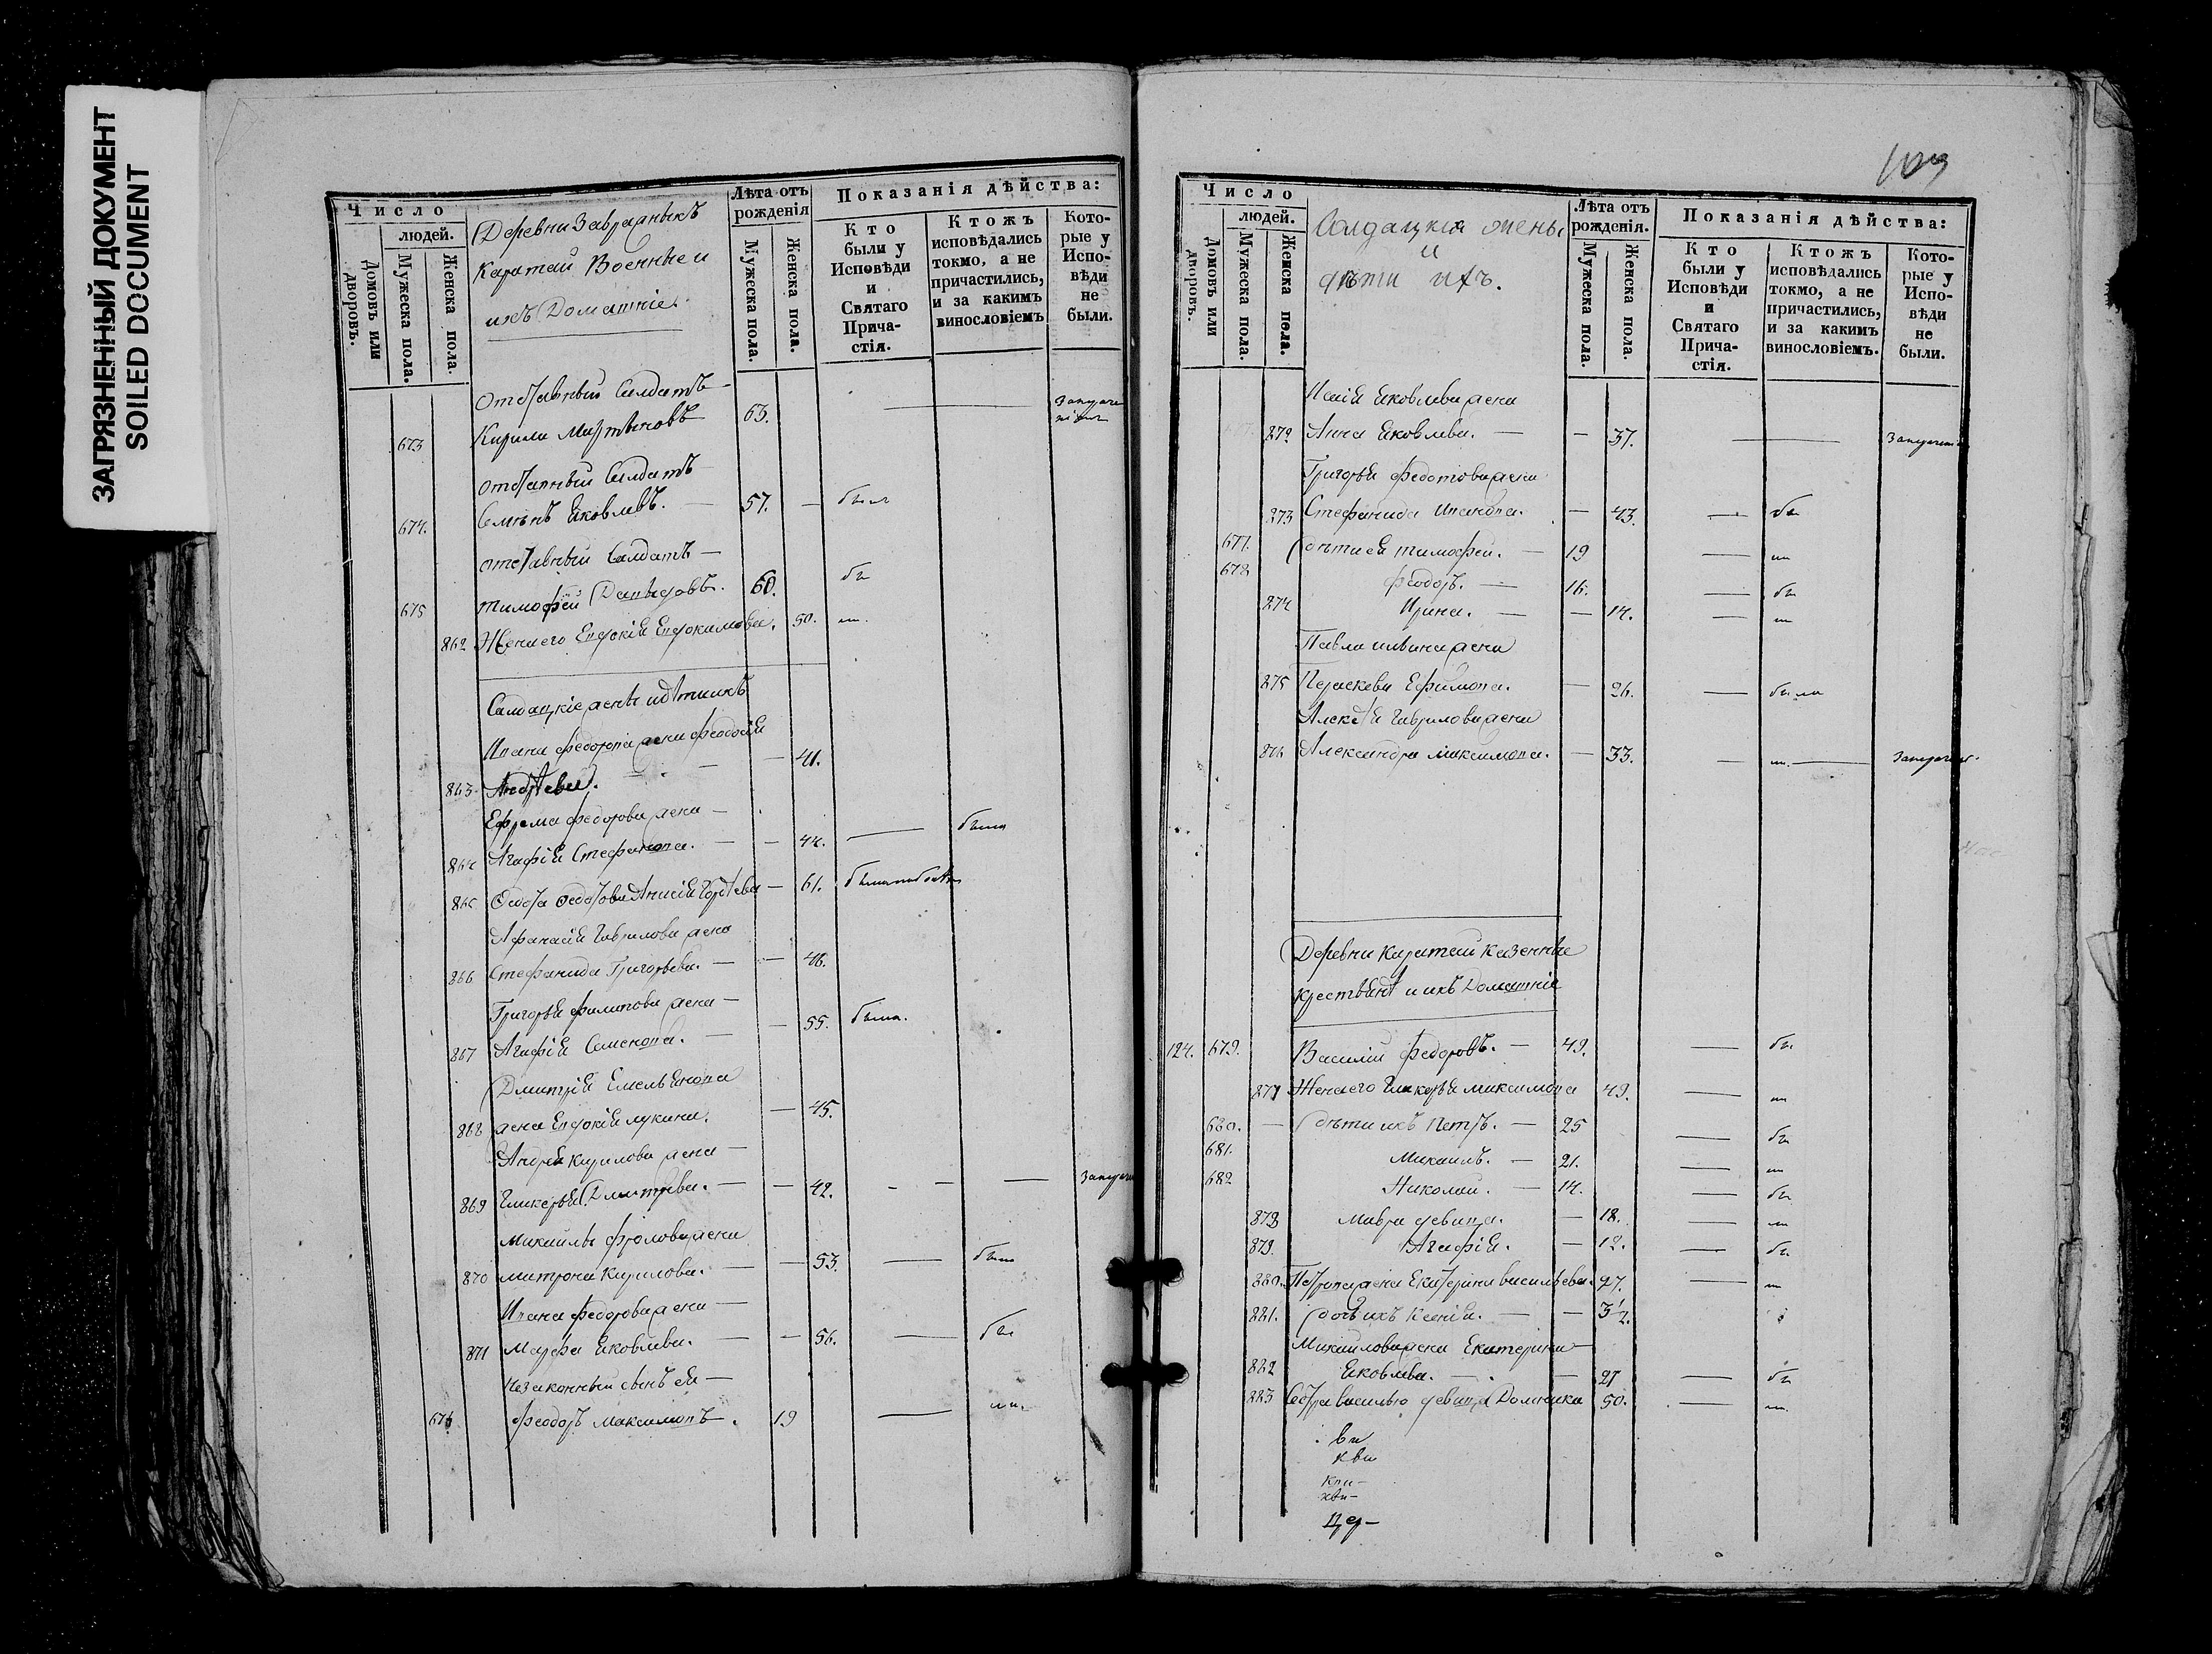 ЗАГРЯЗНЕННЫЙ ДОКУМЕНТ
SOILED DOCUMENT
Число
людей.
Домовъ или дворовъ.
Мужеска пола.
Женска пола.
Деревни Завражныхъ
Каратай Военные и
ихъ Домашніе.
Лѣта отъ рожденія
Мужеска пола.
Женска пола.
Показанія дѣйства:
Кто были у Исповѣди и Святаго Причастія.
Ктожъ исповѣдались токмо, а не причастились, и за какимъ винословіемъ
Которые у Исповѣди не были.
Отставный Салдатъ
673 Кирила Мартыновъ 63.
отставный Салдатъ
674. Семенъ Яковлевъ. — 57. — былъ
отставный Салдатъ —
675 Тимофей Давыдовъ. 60. бы
862 Жена его Евдокія Евдокимова. 50.
Салдацкіе жены и дѣти ихъ
Ивана Федорова жена Феодосія
863. Андреева. — 41.
Ефрема Федорова жена —
864 Агафія Стефанова. — — 44. — была
865 Федота Федотова Анисія Гордеева — 61.
Афанасія Гаврилова жена
866 Стефанида Григорьева. — — 46.
Григорья Филипова жена —
867 Агафія Семенова. — — 55. была.
Дмитрія Емельянова
868 жена Евдокія Лукина. — 45.
Андрея Кирилова жена —
869 Гликерья Дмитрева. — — 42. - — —
Михаилы Фролова жена
870 Матрона Кирилова. — — 53. — была
Ивана Федорова жена —
871 Марфа Яковлева. — — 56. — бы
Незаконный сынъ ея —
676 Феодоръ Максимовъ. 19 —
109
Число
людей.
Домовъ или дворовъ.
Мужеска пола.
Женска пола.
Солдацкія жены
и
дѣти ихъ.
Лѣта отъ рожденія.
Мужеска пола.
Женска пола.
Показанія дѣйства:
Кто были у Исповѣди и Святаго Причастія.
Ктожъ исповѣдались токмо, а не причастились, и за какимъ винословіемъ.
Которые у Исповѣди не были.
Яковлева жена
872 Анна Яковлева. — — 37. —
Григорья Федотова жена
873 Стефанида Иванова. — 43. — бы
677. дѣти ея Тимофей. — 19 —
678 Феодоръ. — 16. — бы
874 Ирина. — — 14. —
Павла жена
875 Параскева Ефимова. — 26. — была
Алексея Гаврилова жена
876 Александра Максимова. — 33. —
Деревни Каратай Казенные
крестьяне и ихъ Домашніе
124. 679. Василій Федоровъ. — 49. — бы
877 Жена его Гликерья Максимова 49. —
680. — дѣти ихъ Петръ. — 25 — бы
681. Михаилъ. — 21. —
682 Николай. — 14. — бы
878 Мавра девица. — 18. —
879. Агафія. — 12. — бы
880. Петрова жена Екатерина Васильева. 27. —
881. дочь ихъ Ксенія. — — 3 1/2.
Михаилова жена Екатерина
882 Яковлева. — — 21 — бы
883 Сестра Василью девица Домника 50. —